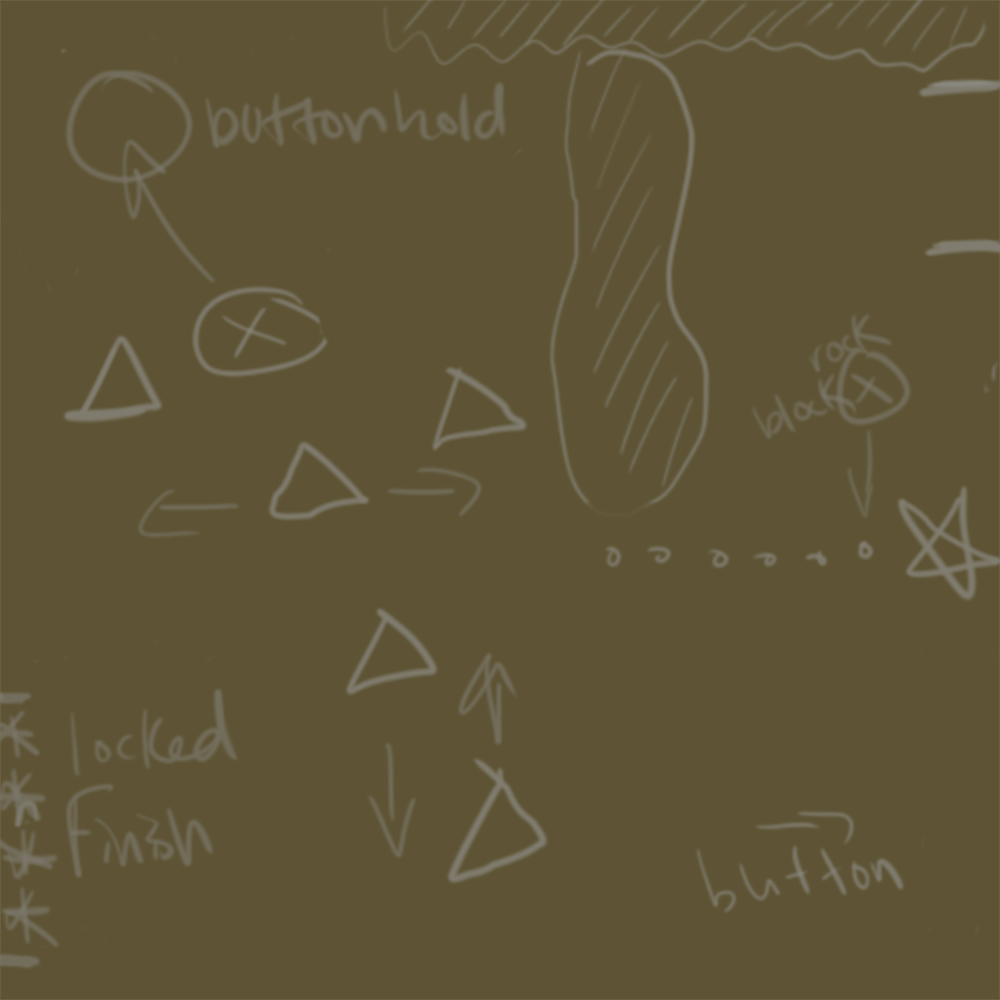 buttonhold
rock
block
locked
finish
button